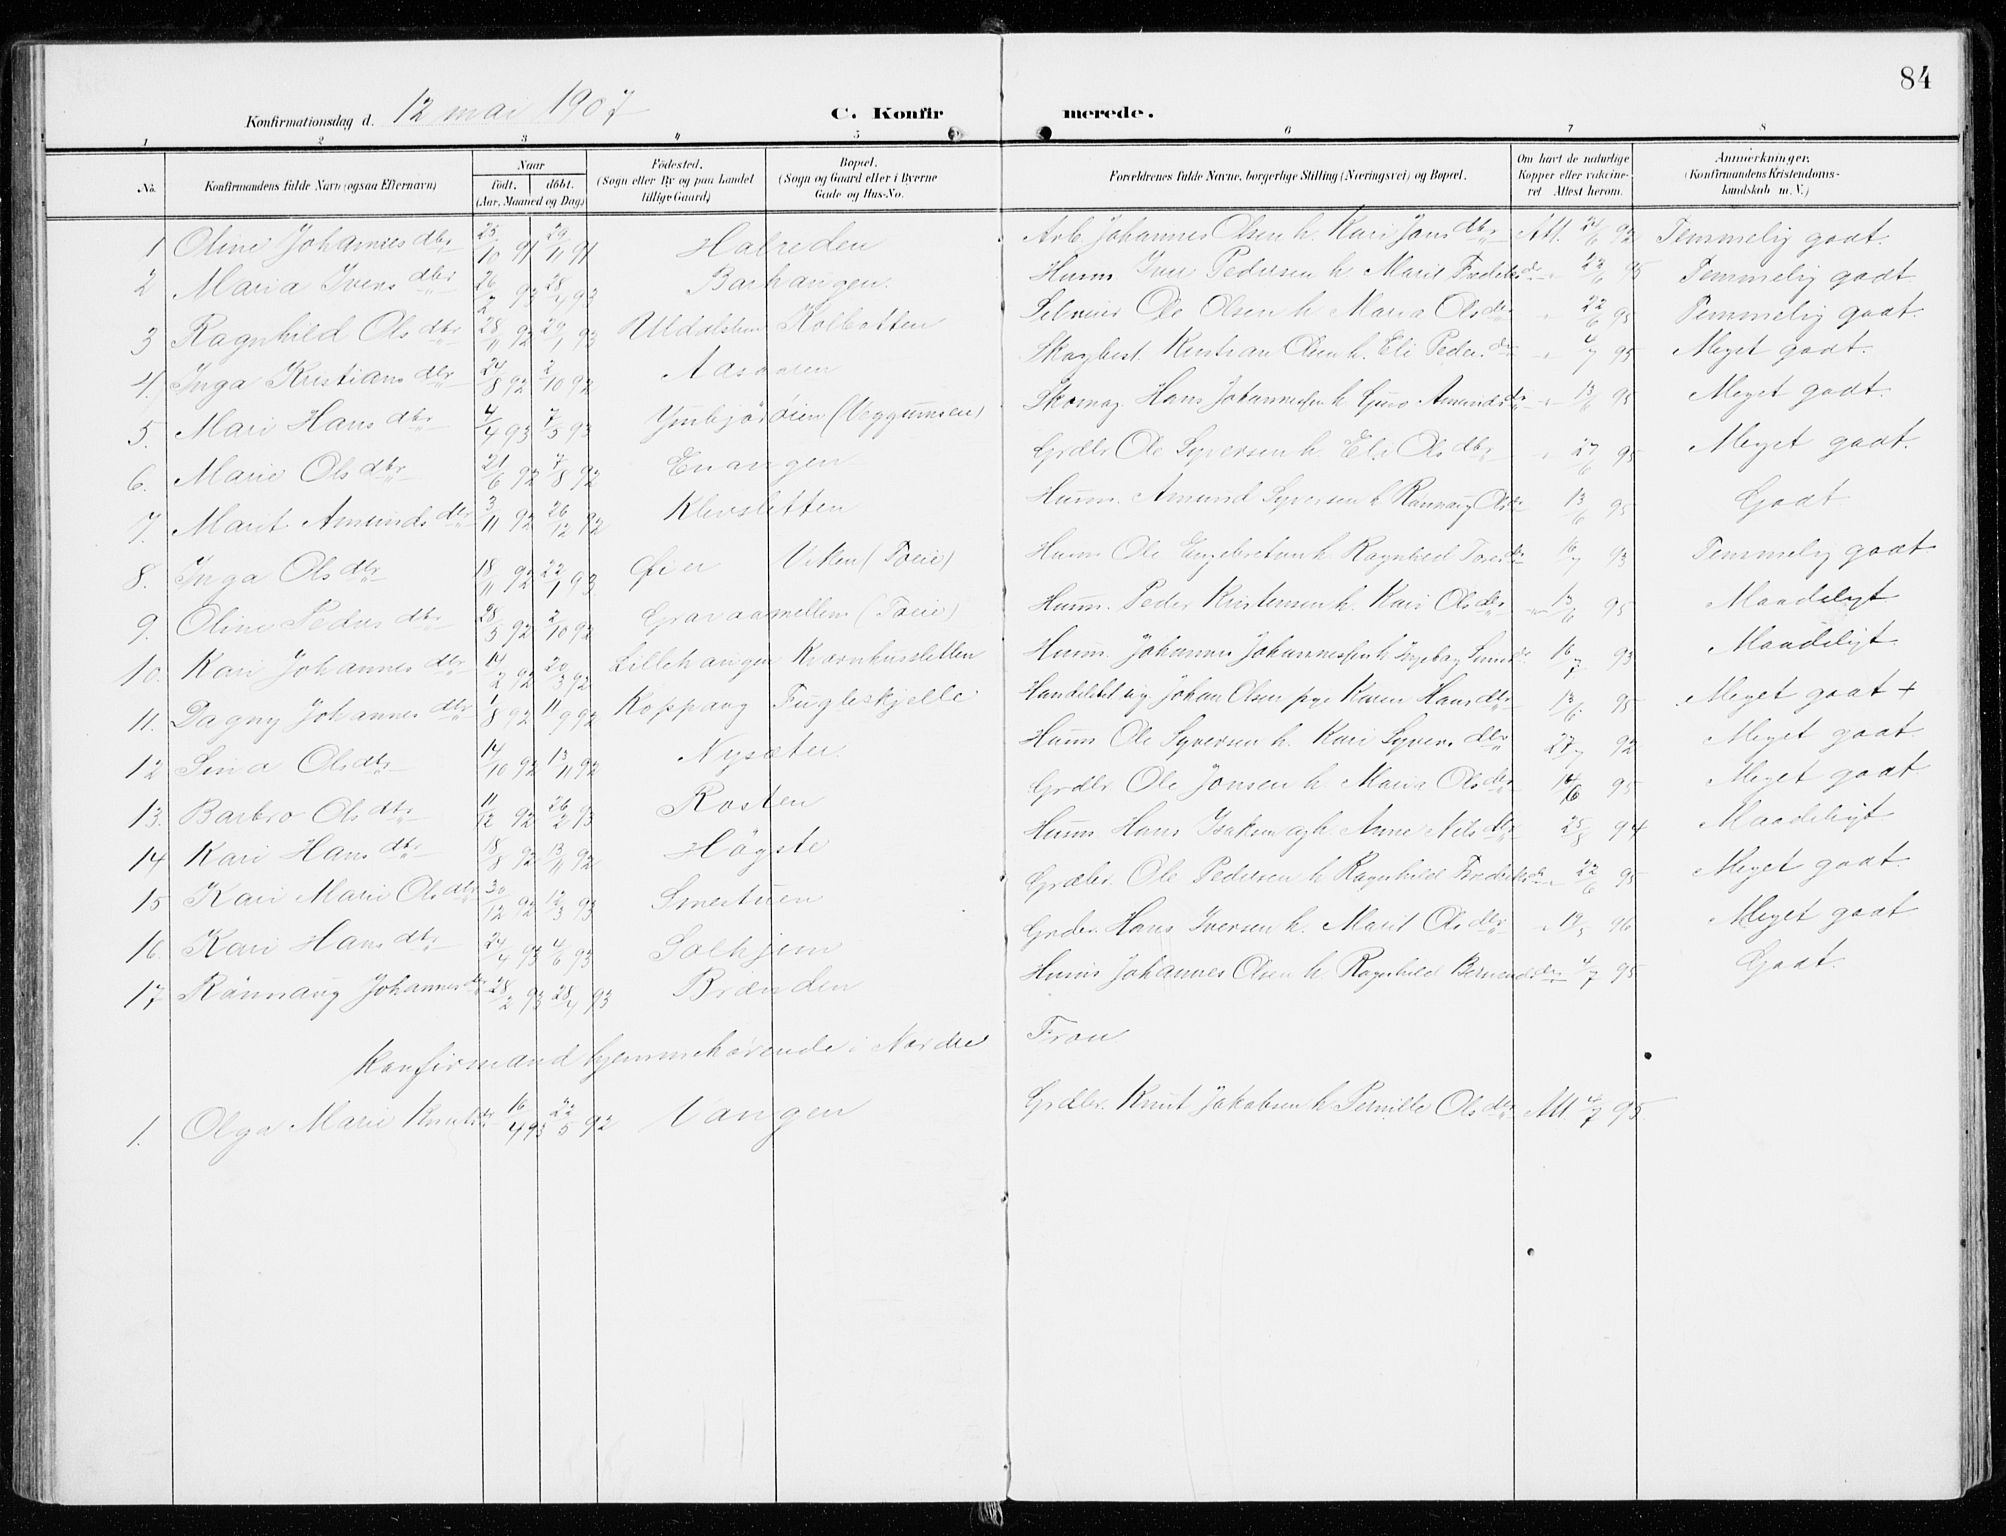 84
Konfirmationsdag d. 12 mai 1907 C. Konfirmerede.
1 2 3 4 5 6 7 8
No. Konfirmandens fulde Navn (ogsaa Efternavn) Naar født, døbt. (Aar, Maaned og Dag) Födested. (Sogn eller By og paa Landet tillige Gaard) Bopæl. (Sogn og Gaard eller i Byerne Gade og Hus-No. Forældrenes fulde Navne, borgerlige Stilling (Næringsvei) og Bopæl. Om havt de naturlige Kopper eller vakcineret Attest herom. Anmerkninger. (Konfirmandens Kristendomskundskab m. V.)
1 Oline Johannesdtr 25/10 91 29/11 91 Halreden Arb. Johannes Olsen h. Kari Jonsdtr Att. 24/6 92 Temmelig godt.
2 Maria Iversdtr 26/2 93 28/4 93 Barhaugen. Husm. Iver Pedersen h. Marit 22/6 95 Temmelig godt.
3 Ragnhild Olsdtr 28/11 92 29/1 93 Uldalslien Kolbotten Selveier Ole Olsen h. Maria Olsdtr " 22/6 95 Temmelig godt.
4. Inga Kristiansdtr 24/8 92 2/10 92 Aasaaren Skogbest. Kristian Olsen h. Eli Pedersdtr " 4/7 95 Meget godt.
5. Mari Hansdtr 4/4 93 7/5 93 (Veggumseie) Skomag. Hans Johannessen h. Guro Amundsdtr " 13/6 95 Meget godt.
6. Marie Olsdtr 21/6 92 7/8 92 Enangen Grdbr. Ole Syversen h. Eli Olsdtr " 27/6 95 Meget godt.
7. Marit Amundsdtr 3/11 92 26/12 92 Klevsletten Husm. Amund Syversen h. Rønnaug Olsdtr 13/6 95 Godt.
8. Inga Olsdtr 18/11 92 22/1 93 Øier Viken (Toeie) Husm. Ole Engebretsen h. Ragnhild Toresdtr 16/7 93 Temmelig godt
9. Oline Pedersdtr 28/5 92 2/10 92 Gravaamellem (Toeie) Husm. Peder Kristensen h. Kari Olsdtr " 13/6 95 Maadeligt
10. Kari Johannesdtr 14/2 92 20/3 92 Lillehaugen Kværnhussletten Husm. Johannes Johannessen h. Ingeborg 16/7 93 Maadeligt.
11. Dagny Johannesdtr 1/8 92 11/9 92 Koppang Fugleskjelle Johan Olsen pige Karen Hansdtr 13/6 95 Meget godt +
12 Sina Olsdtr 14/10 92 13/11 92 Nysæter. Husm Ole Syversen h. Kari Syversdtr 27/7 92 Meget godt
13. Barbro Olsdtr 11/12 92 26/2 93 Rosten Grdbr. Ole Jonsen h. Maria Olsdtr 14/6 95 Meget godt
14 Kari Hansdtr 18/8 92 13/11 92 Högste Husm. Hans Isaksen h. Anne Nilsdtr 25/8 94 Maadeligt
15 Kari Marie Olsdtr 30/12 92 12/3 93 Smestuen Grdbr. Ole Pedersen h. Ragnhild Fredriksdtr " 22/6 95 Meget godt
16. Kari Hansdtr 24/4 93 4/6 93 Solhjem Grdbr. Hans Iversen h. Marit Olsdtr " 13/5 96 Meget godt
17 Rönnaug Johannesdtr 28/2 93 28/4 93 Brænden Husm Johannes Olsen h. Ragnhild 4/7 95 Godt.
Konfirmand hjemmehørende i Nordre Fron
1. Olga Marie Knutsdtr 16/4 93 22/5 92 Vangen Grdbr. Knut Jakobsen h. Pernille Olsdtr Att. 4/7 95.